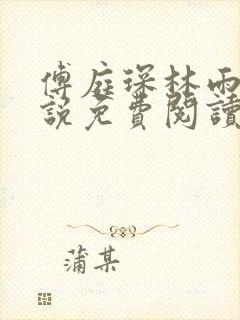 傅庭琛林雨
說免費閱讀
蒲某